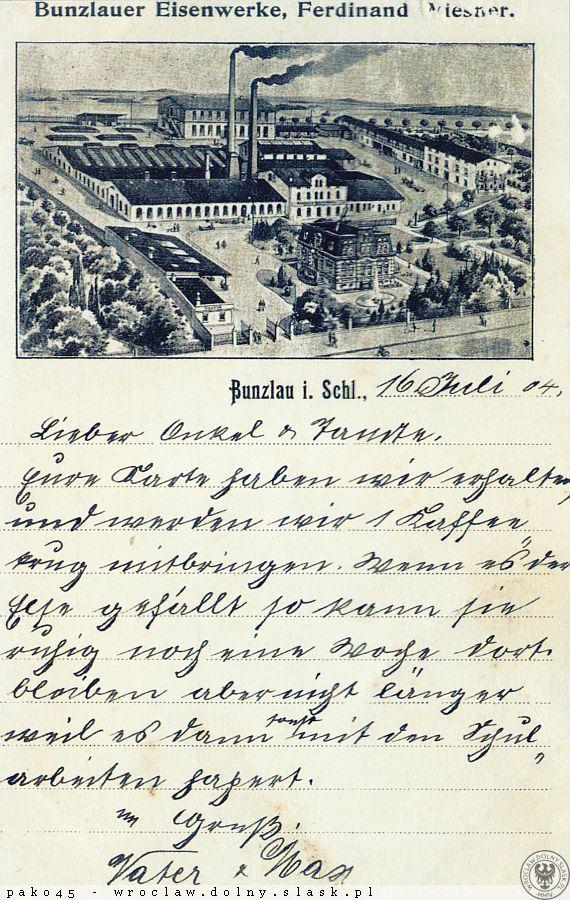 Bunzlauer Eisenwerke, Ferdinand Wiesner.
Bunzlau i. Schl., 16 Juli 04.
Lieber Onkel & Tandte.
Eure Karte haben wir erhalten,
und werden wir 1 Kaffee„
krug mitbringen. Wenn es der
Else gefällt so kann sie
ruhig noch eine Woche dort
bleiben aber nicht länger
weil es dann sonst mit den Schul„
arbeiten hapert.
m Gruß.
Vater & Max
WROCLAW.DOLNY.SLASK.PL
pako45 - wroclaw.dolny.slask.pl